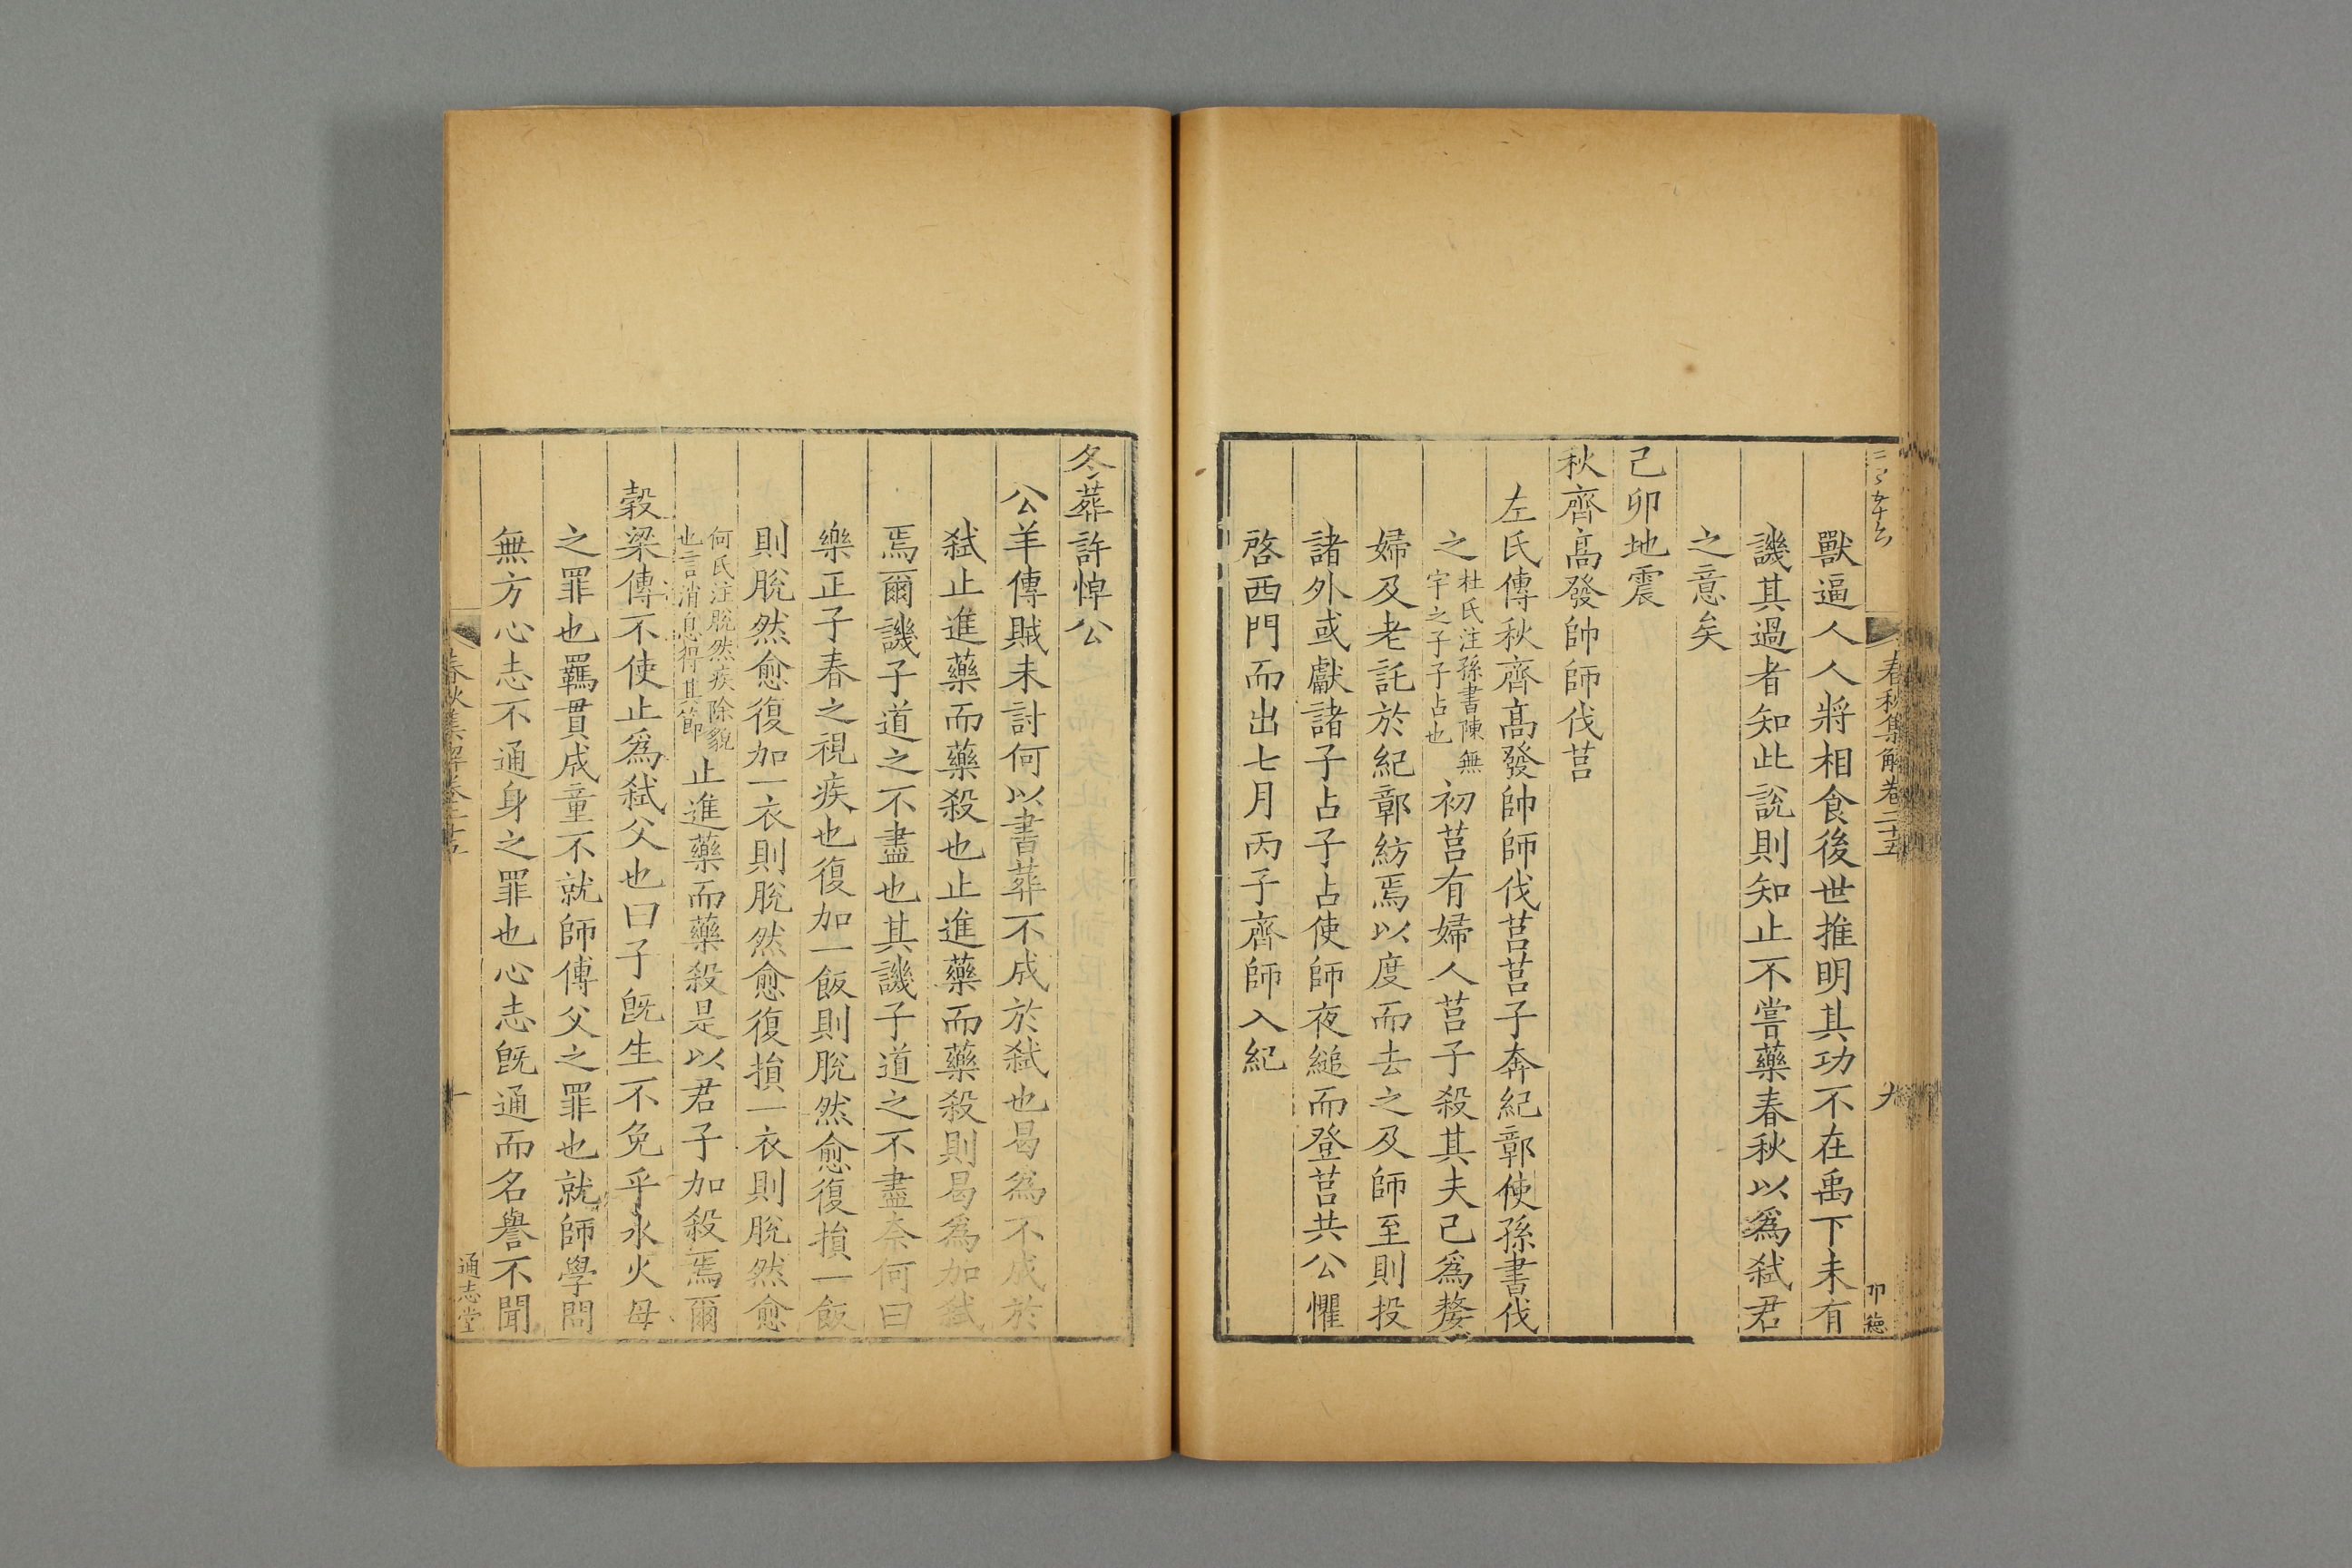 春秋集解卷二十五
九
獸逼人人將相食後世推明其功不在禹下未有
譏其過者知此說則知止不嘗藥春秋以爲弑君
之意矣
己卯地震
秋齊高發帥師伐莒
左氏傳秋齊高發帥師伐莒莒子奔紀鄣使孫書伐
之杜氏注孫書陳無宇之子子占也初莒有婦人莒子殺其夫己爲嫠
婦及老託於紀鄣紡焉以度而去之及師至則投
諸外或獻諸子占子占使師夜縋而登莒共公懼
啓西門而出七月丙子齊師入紀
冬葬許悼公
公羊傳賊未討何以書葬不成於弑也曷爲不成於
弑止進藥而藥殺也止進藥而藥殺則曷爲加弑
焉爾譏子道之不盡也其譏子道之不盡奈何曰
樂正子春之視疾也復加一飯則脫然愈復損一飯
則脫然愈復加一衣則脫然愈復損一衣則脫然愈
何氏注脫然疾除貌也言消息得其節止進藥而藥殺是以君子加殺焉爾
穀梁傳不使止爲弑父也曰子旣生不免乎水火母
之罪也羈貫成童不就師傅父之罪也就師學問
無方心志不通身之罪也心志旣通而名譽不聞
春秋集解卷二十五
通志堂